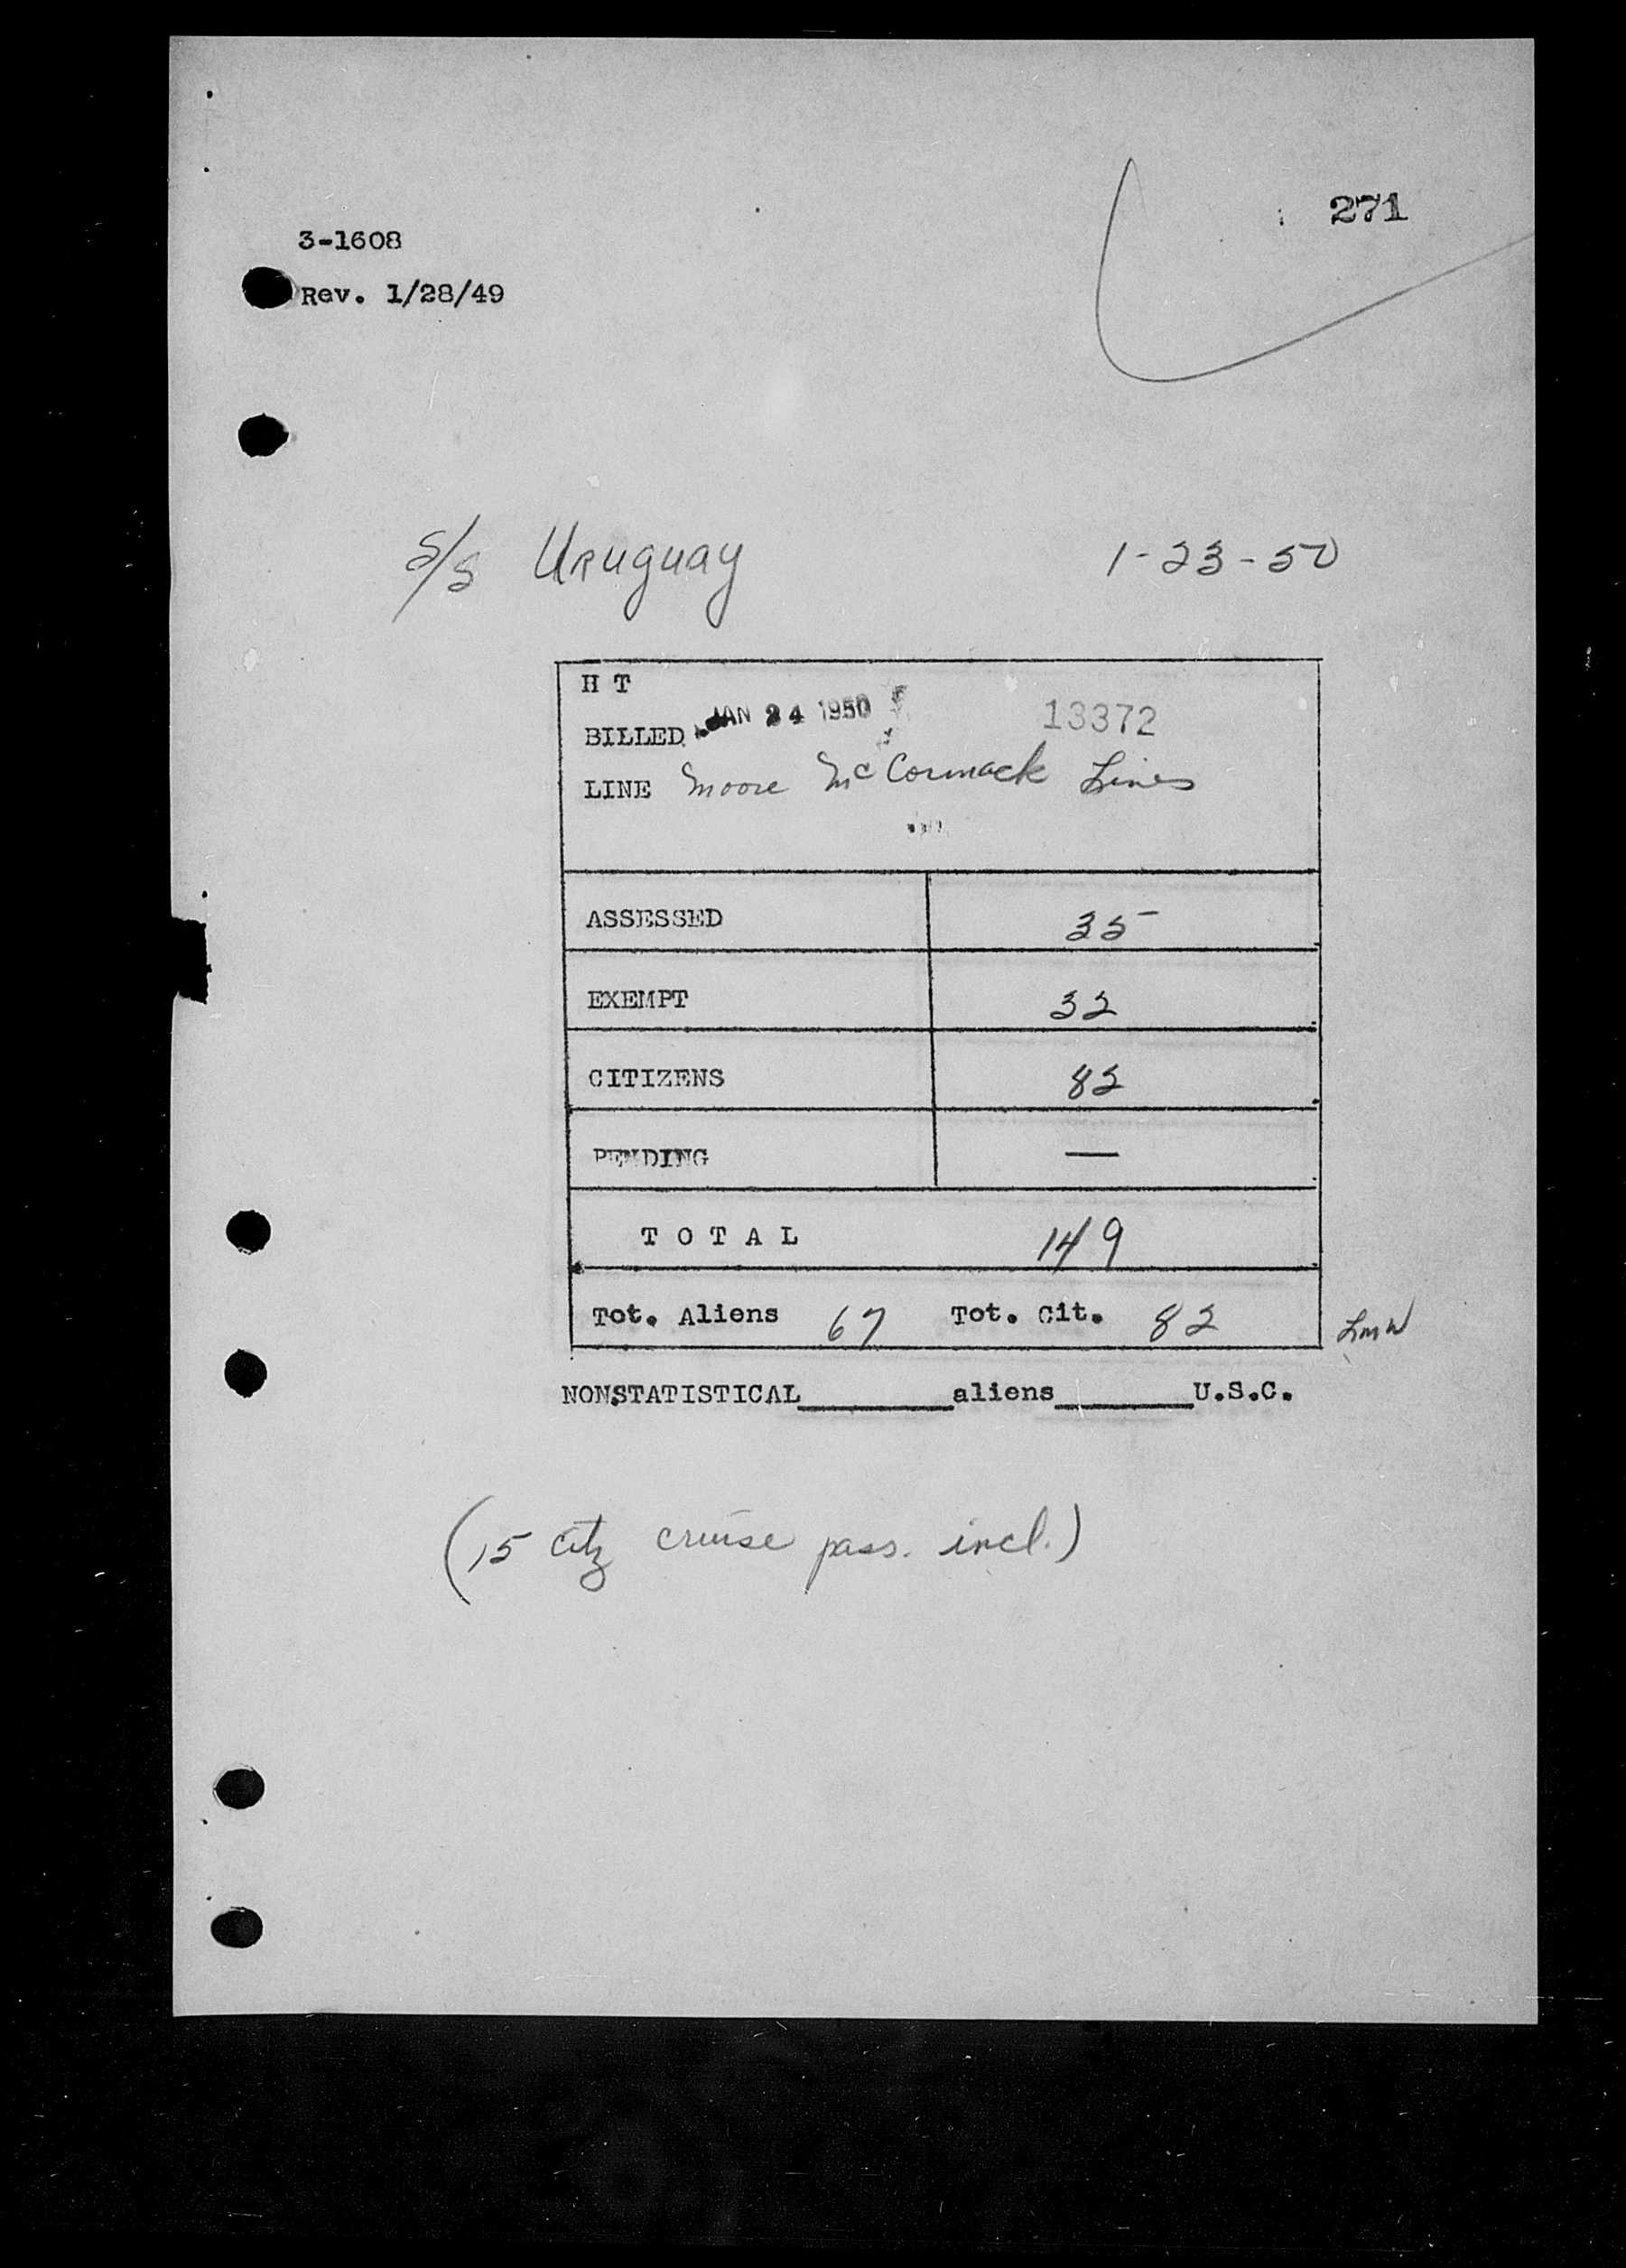 271
3-1608
Rev. 1/28/49
S/S Uruguay 1-23-50
H T
BILLED JAN 24 1950 13372
LINE Moore McCormack Lines
ASSESSED 35
EXEMPT 32
CITIZENS 82
PENDING —
T O T A L 149
Tot. Aliens 67 Tot. Cit. 82 LMW
NONSTATISTICAL________aliens_______U.S.C.
(15 citz cruise pass. incl.)